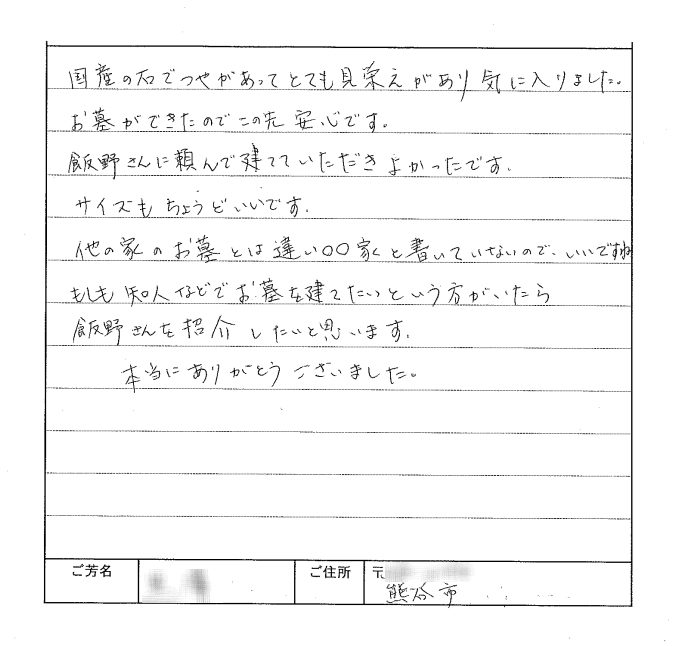 国産の石でつやがあってとても見栄えがあり気に入りました。
お墓ができたのでこの先安心です。
飯野さんに頼んで建てていただきよかったです。
サイズもちょうどいいです。
他の家のお墓とは違い〇〇家と書いていないので、いいですね
もしも知人などでお墓を建てたいという方がいたら
飯野さんを紹介したいと思います。
本当にありがとうございました。
ご芳名
ご住所
〒
熊谷市